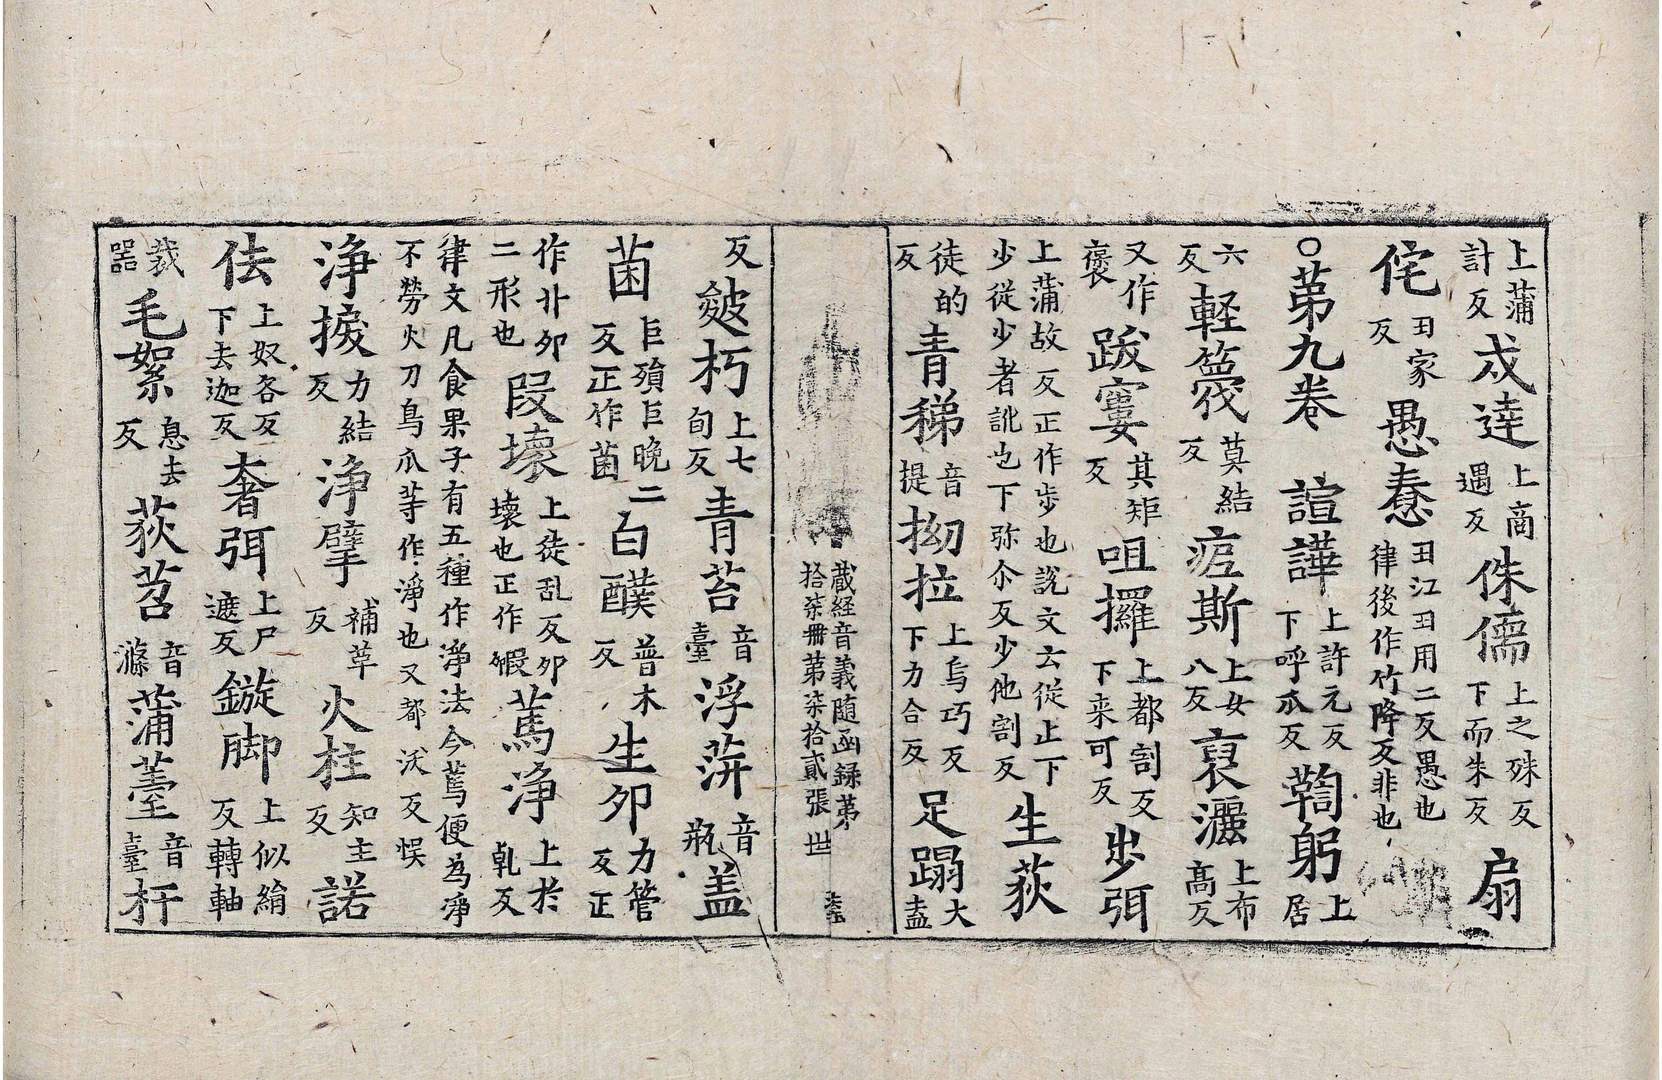 上蒲計反戍達上商遇反侏儒上之殊反下而朱反扇
侘丑家反愚憃丑江丑用二反愚也律後作竹降反非也
○苐九卷諠譁上許元反下呼瓜反鞫躬上居
六反輕篾莫結反痆斯上女八反裒灑上布高反
又作褒跋窶其矩反咀攞上都割反下来可反步弭
上蒲故反正作步也說文云從止下少從少者訛也下弥尒反少他割反生荻
徒的反青稊音提拗拉上烏巧反下力合反足蹋大盍
藏經音義随函録苐拾柒冊苐柒拾貳張 世
反皴朽上七旬反青苔音臺浮蓱音瓶盖
菌巨殞巨晚二反正作菌白醭普木反生夘力管反正
作卝夘二形也段壞上徒乱反夘壞也正作毈蔫淨上扵乹反
律文凡食果子有五種作淨法今蔫便為淨不勞火刀鳥爪等作淨也又都沃反悮
淨捩力結反淨擘補革反火柱知主反諾
佉上奴各反下去迦反奢弭上尸遮反鏇脚上似綸反轉軸
裁器毛絮息去反荻苕音滌蒲薹音臺杆